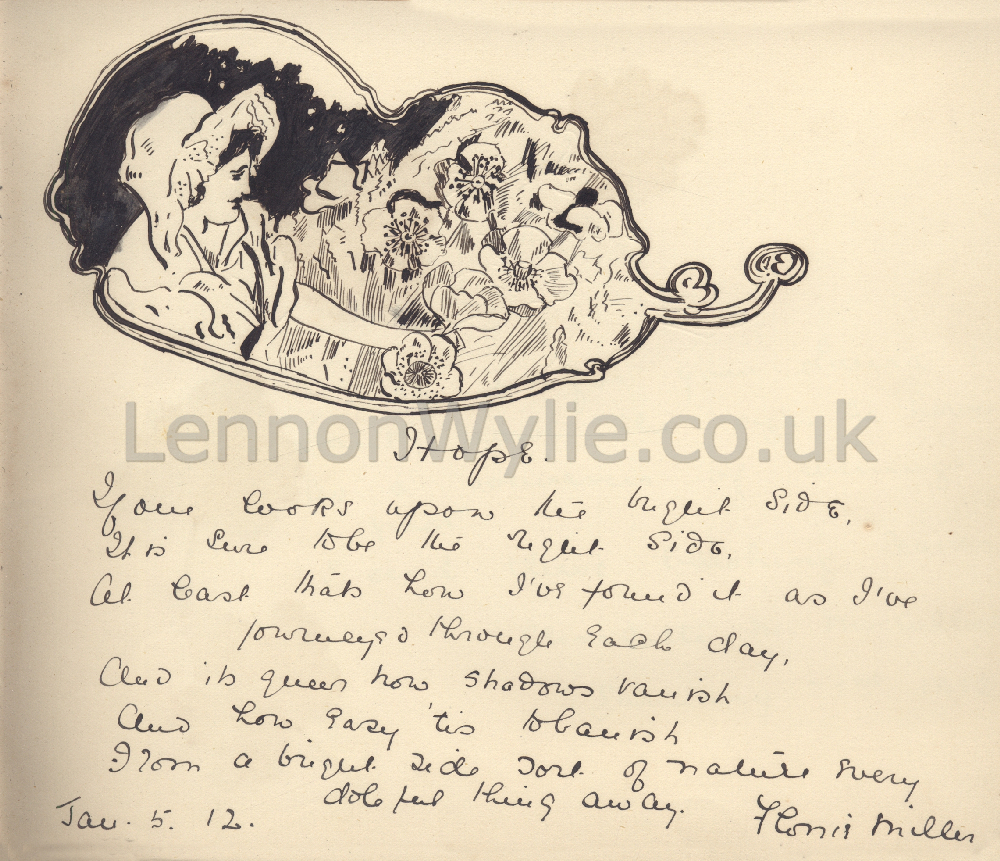 LennonWylie.co.uk
Hope.
If one looks upon the bright side,
It is sure to be the right side,
At least thats how I've found it as I've
journeyed through each day,
And its queer how shadows vanish
And how easy 'tis to banish
From a bright side sort of nature every
doleful thing away.
Jan. 5. 12.
Florrie Miller